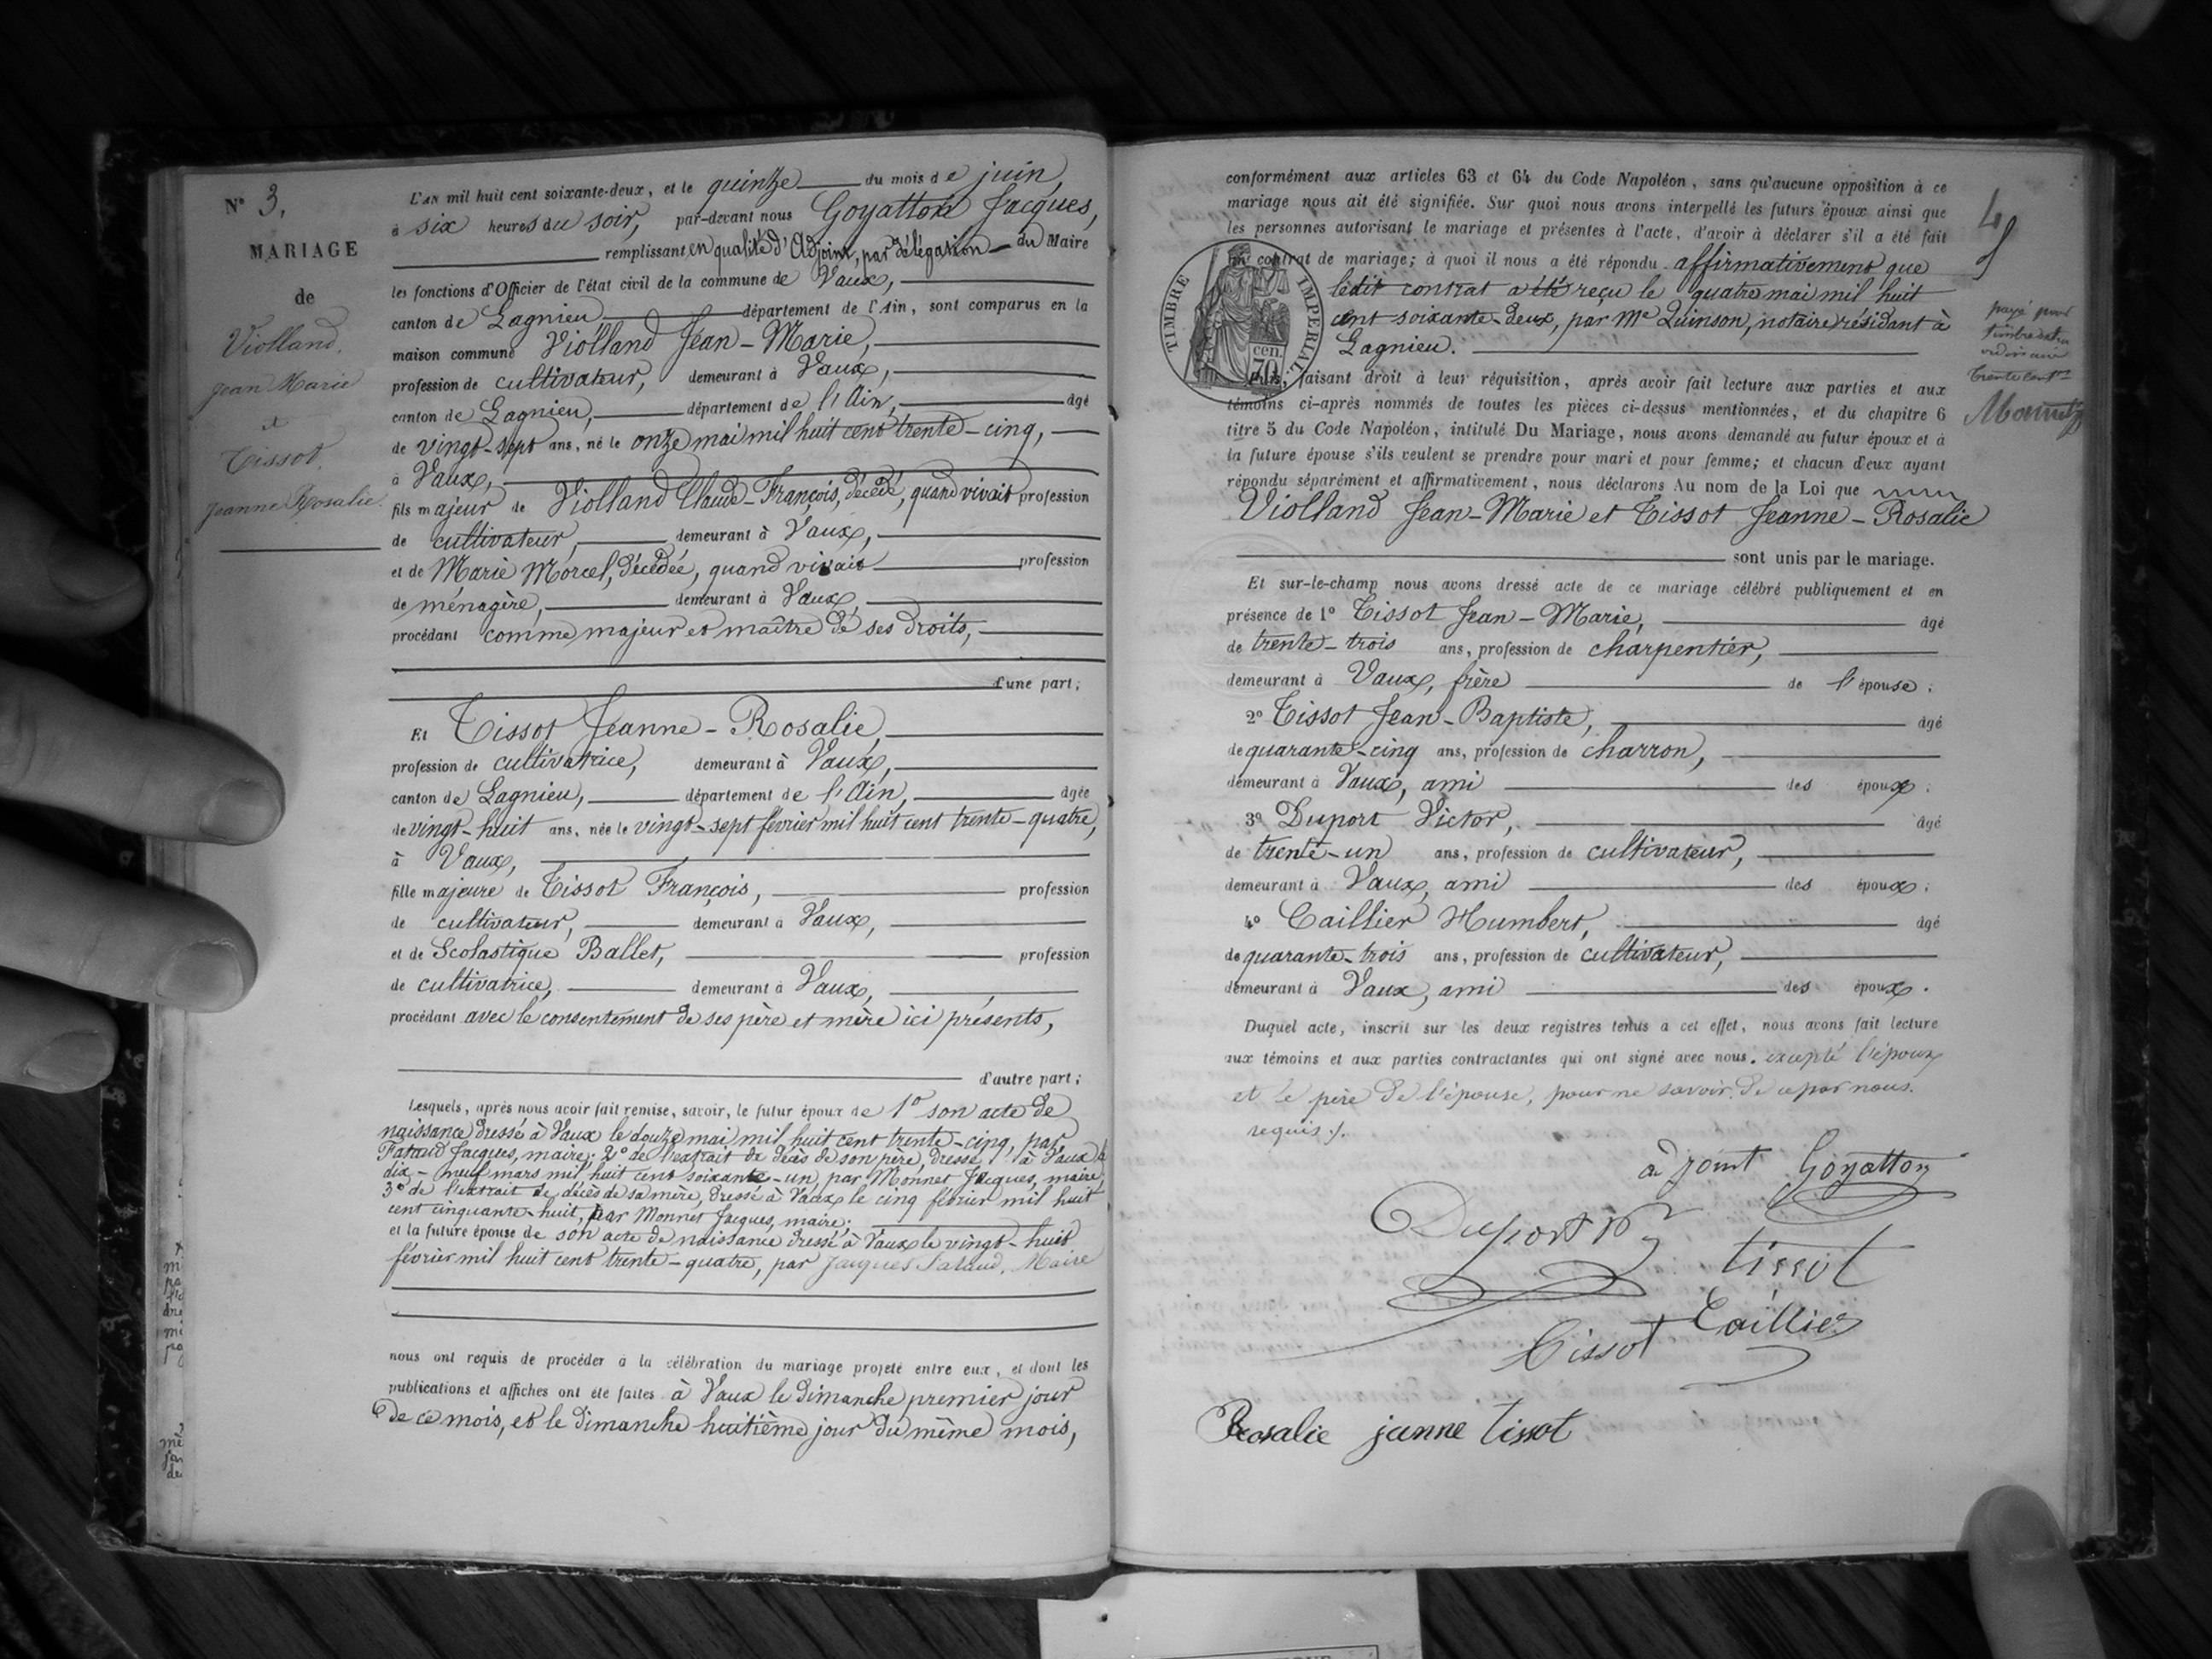 N° 3.
MARIAGE
de
Violland
Jean Marie
&
Tissot
Jeanne Rosalie.
L'AN mil huit cent soixante-deux, et le quinze du mois de juin,
à six heures du soir, par-devant nous Goyatton Jacques,
remplissant en qualité d'Adjoint, par délégation du Maire
les fonctions d'Officier de l'état civil de la commune de Vaux,
canton de Lagnieu département de l'Ain, sont comparus en la
maison commune Violland Jean-Marie,
profession de cultivateur, demeurant à Vaux,
canton de Lagnieu, département de l'Ain, âgé
de vingt-sept ans, né le onze mai mil huit cent trente-cinq,
à Vaux,
fils majeur de Violland Claude-François, décédé, quand vivait profession
de cultivateur, demeurant à Vaux,
et de Marie Morcel, décédée, quand vivait profession
de ménagère, demeurant à Vaux,
procédant comme majeur et maître de ses droits,
d'une part;
Et Tissot Jeanne-Rosalie,
profession de cultivatrice, demeurant à Vaux,
canton de Lagnieu, département de l'Ain, âgée
de vingt-huit ans, née le vingt-sept février mil huit cent trente-quatre,
à Vaux,
fille majeure de Tissot François, profession
de cultivateur, demeurant à Vaux,
et de Scolastique Ballet, profession
de cultivatrice, demeurant à Vaux,
procédant avec le consentement de ses père et mère ici présents,
d'autre part;
Lesquels, après nous avoir fait remise, savoir, le futur époux de 1° son acte de
naissance dressé à Vaux le douze mai mil huit cent trente-cinq, par
Jacques, maire; 2° de l'extrait de décès de son père, dressé à Vaux le
dix-neuf mars mil huit cent soixante-un, par Monnet Jacques, maire;
3° de l'extrait de décès de sa mère, dressé à Vaux le cinq février mil huit
cent cinquante-huit, par Monnet Jacques, maire;
et la future épouse de son acte de naissance dressé à Vaux le vingt-huit
février mil huit cent trente-quatre, par Jacques Maire
nous ont requis de procéder à la célébration du mariage projeté entre eux, et dont les
publications et affiches ont été faites à Vaux le dimanche premier jour
de ce mois, et le dimanche huitième jour du même mois,
conformément aux articles 63 et 64 du Code Napoléon, sans qu'aucune opposition à ce
mariage nous ait été signifiée. Sur quoi nous avons interpellé les futurs époux ainsi que
les personnes autorisant le mariage et présentes à l'acte, d'avoir à déclarer s'il a été fait
un contrat de mariage; à quoi il nous a été répondu affirmativement que
ledit contrat a été reçu le quatre mai mil huit
cent soixante-deux, par Me Quinson, notaire résidant à
Lagnieu.
TIMBRE IMPERIAL
cen.
70
Puis, faisant droit à leur réquisition, après avoir fait lecture aux parties et aux
témoins ci-après nommés de toutes les pièces ci-dessus mentionnées, et du chapitre 6
titre 5 du Code Napoléon, intitulé Du Mariage, nous avons demandé au futur époux et à
la future épouse s'ils veulent se prendre pour mari et pour femme; et chacun d'eux ayant
répondu séparément et affirmativement, nous déclarons Au nom de la Loi que
Violland Jean-Marie et Tissot Jeanne-Rosalie
sont unis par le mariage.
Et sur-le-champ nous avons dressé acte de ce mariage célébré publiquement et en
présence de 1° Tissot Jean-Marie, âgé
de trente-trois ans, profession de charpentier,
demeurant à Vaux, frère de l'épouse;
2° Tissot Jean-Baptiste, âgé
de quarante-cinq ans, profession de charron,
demeurant à Vaux, ami des époux;
3° Duport Victor, âgé
de trente-un ans, profession de cultivateur,
demeurant à Vaux, ami des époux;
4° Caillier Humbert, âgé
de quarante-trois ans, profession de cultivateur,
demeurant à Vaux, ami des époux.
Duquel acte, inscrit sur les deux registres tenus à cet effet, nous avons fait lecture
aux témoins et aux parties contractantes qui ont signé avec nous. excepté l'époux
et le père de l'épouse, pour ne savoir de ce par nous.
requis ./.
à joint Goyatton
Duport
tissot
Caillier
Tissot
Rosalie janne tissot
4
payé pour
trente cent